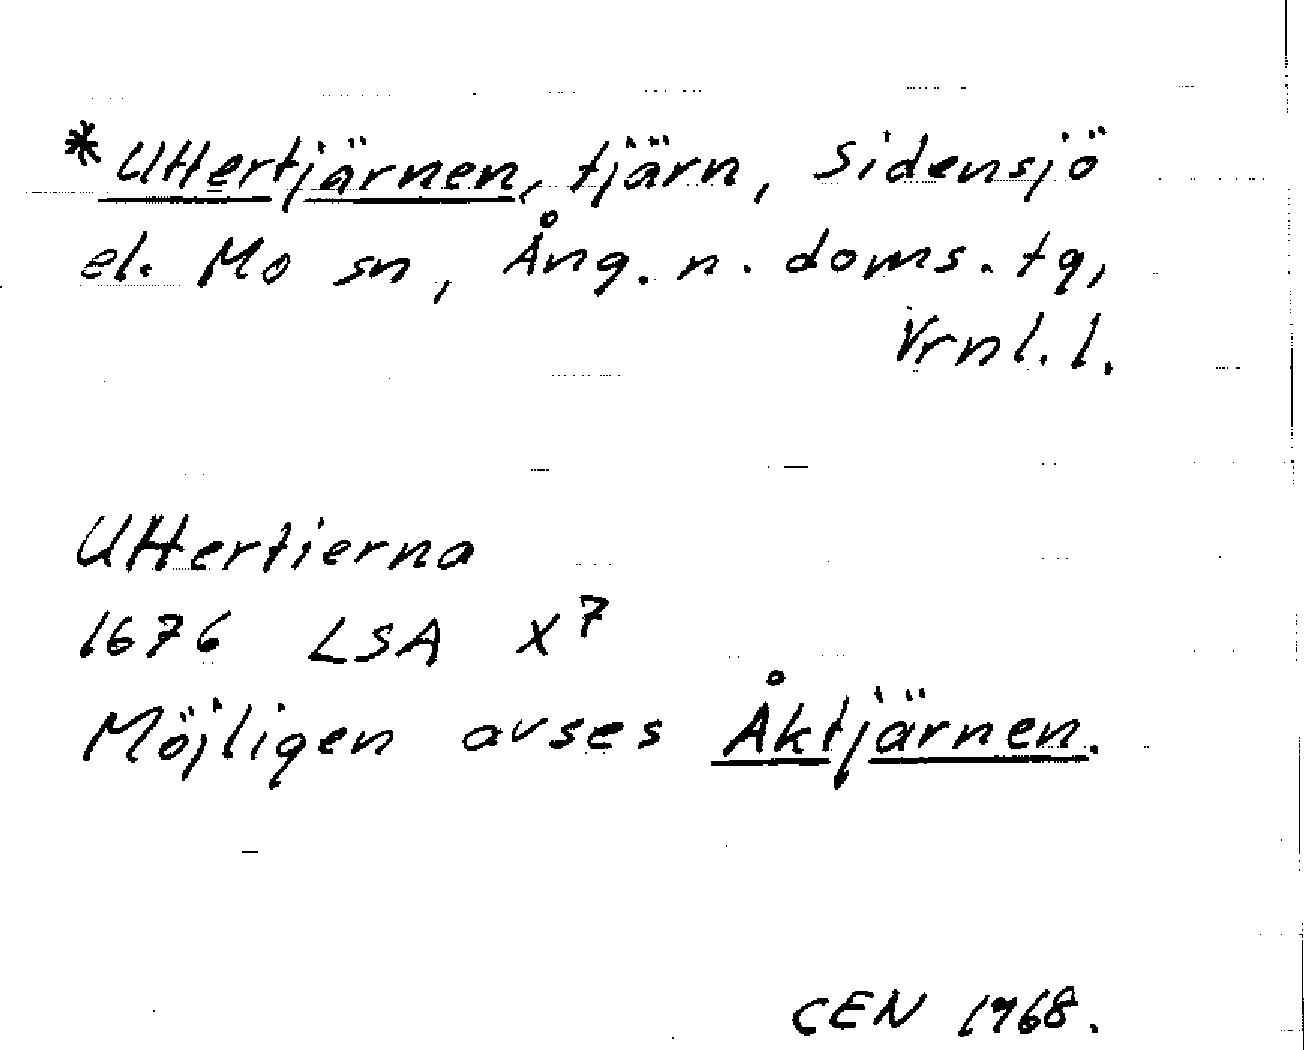 *Uttertjärnen, tjärn, Sidensjö
el. Mo sn, Ång. n. doms. tg,
Vrnl. l.
Uttertierna
1676 LSA X7
Möjligen avses Åktjärnen.
CEN 1968.